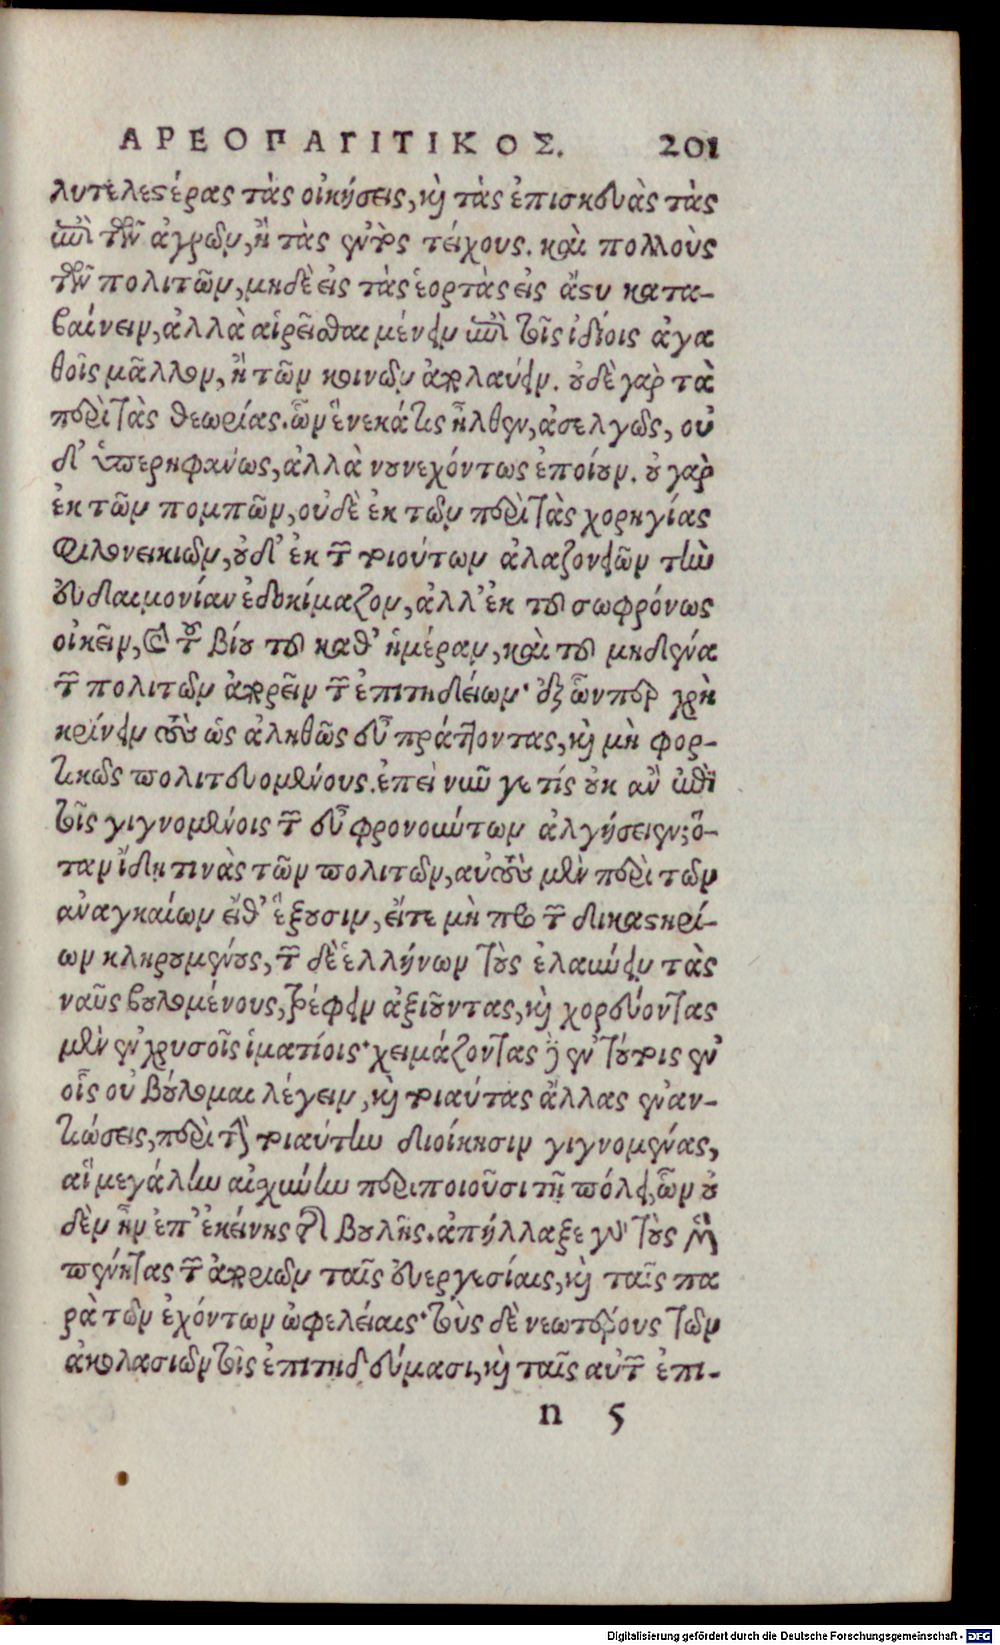 ΑΡΕΟΠΑΓΙΤΙΚΟΣ. 201
λυτελεστέρας τὰς οἰκήσεις, καὶ τὰς ἐπισκευὰς τὰς
ἐπὶ τῶν ἀγρῶν, ἢ τὰς ἐντὸς τείχους. καὶ πολλοὺς
τῶν πολιτῶν, μηδὲ εἰς τὰς ἑορτὰς εἰς ἄστυ κατα-
βαίνειν, ἀλλὰ αἱρεῖσθαι μένειν ἐπὶ τοῖς ἰδίοις ἀγα
θοῖς μᾶλλον, ἢ τῶν κοινῶν ἀπολαύειν. οὐδὲ γὰρ τὰ
περὶ τὰς θεωρίας. ὧν ἕνεκά τις ἦλθεν, ἀσελγῶς, οὐ
δ' ὑπερηφάνως, ἀλλὰ νουνεχόντως ἐποίουν. οὐ γὰρ
ἐκ τῶν πομπῶν, οὐδὲ ἐκ τῶν περὶ τὰς χορηγίας
φιλονεικιῶν, οὐδ' ἐκ τῶν τοιούτων ἀλαζονειῶν τὴν
εὐδαιμονίαν ἐδοκίμαζον, ἀλλ' ἐκ τοῦ σωφρόνως
οἰκεῖν, καὶ τοῦ βίου τοῦ καθ' ἡμέραν, καὶ τοῦ μηδένα
τῶν πολιτῶν ἀπορεῖν τῶν ἐπιτηδείων· ἐξ ὧνπερ χρὴ
κρίνειν τοὺς ὡς ἀληθῶς εὖ πράττοντας, καὶ μὴ φορ-
τικῶς πολιτευομένους. ἐπεὶ νῦν γε τίς οὐκ ἂν ἐπὶ
τοῖς γιγνομένοις τῶν εὖ φρονούντων ἀλγήσειεν; ὅ-
ταν ἴδῃ τινὰς τῶν πολιτῶν, αὐτοὺς μὲν περὶ τῶν
ἀναγκαίων εἴθ' ἕξουσιν, εἴτε μὴ πρὸ τῶν δικαστηρί-
ων κληρουμένους, τῶν δὲ ἑλλήνων τοὺς ἐλαύνειν τὰς
ναῦς βουλομένους, τρέφειν ἀξιοῦντας, καὶ χορεύοντας
μὲν ἐν χρυσοῖς ἱματίοις· χειμάζοντας δ' ἐν τούτοις ἐν
οἷς οὐ βούλομαι λέγειν, καὶ τοιαύτας ἄλλας ἐναν-
τιώσεις, περὶ τὴν τοιαύτην διοίκησιν γιγνομένας,
αἳ μεγάλην αἰσχύνην περιποιοῦσι τῇ πόλει, ὧν οὐ
δὲν ἦν ἐπ' ἐκείνης τῆς βουλῆς. ἀπήλλαξε γὰρ τοὺς μὲν
πένητας τῶν ἀποριῶν ταῖς εὐεργεσίαις, καὶ ταῖς πα
ρὰ τῶν ἐχόντων ὠφελείαις· τοὺς δὲ νεωτέρους τῶν
ἀκολασιῶν τοῖς ἐπιτηδεύμασι, καὶ ταῖς αὐτῶν ἐπι-
n 5
Digitalisierung gefördert durch die Deutsche Forschungsgemeinschaft - DFG